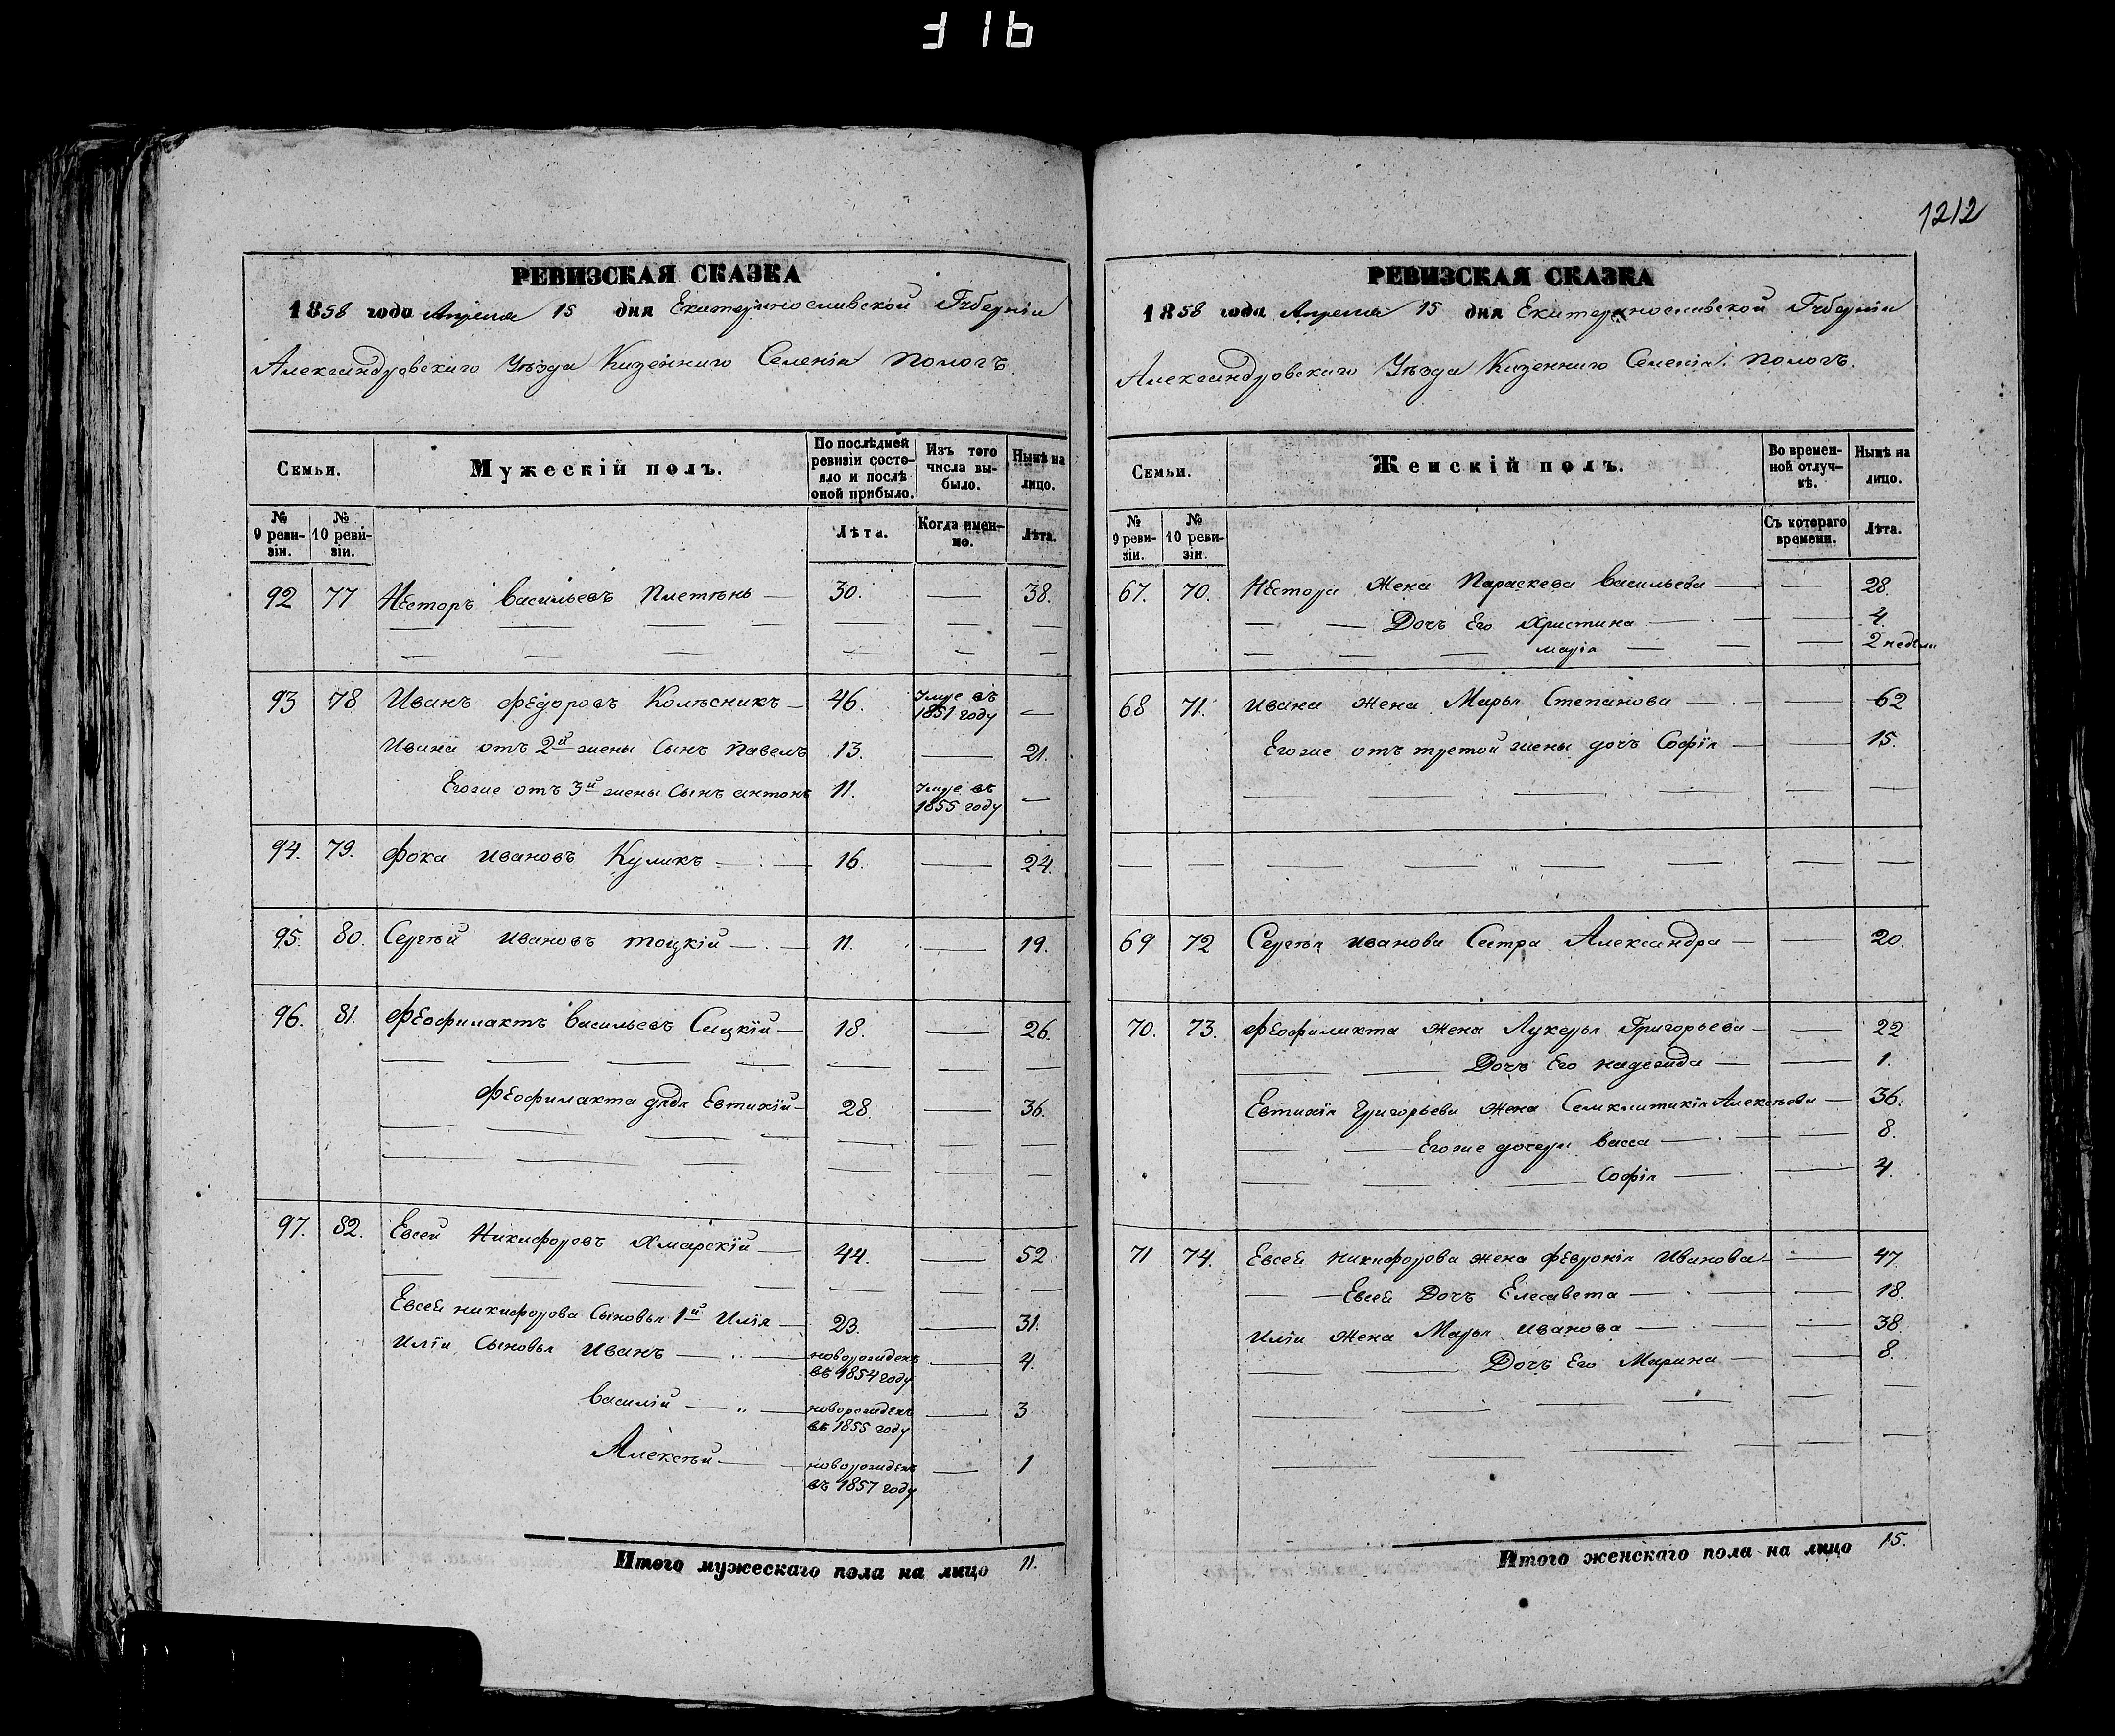 316
РЕВИЗСКАЯ СКАЗКА
1858 года Апреля 15 дня Екатеринославской Губернiи
Александровскаго Уѣзда Казеннаго Селенiя Пологъ
Семьи.
Мужескiй полъ.
По послѣдней ревизiи состояло и послѣ оной прибыло.
Изъ того числа выбыло.
Нынѣ на лицо.
№ 9 ревизiи.
№ 10 ревизiи.
Лѣта.
Когда именно.
Лѣта.
92 77 Несторъ Васильевъ Плетѣнь — 30. — 38.
93 78 Иванъ Федоровъ Колѣсникъ — 46. Умре въ 1851 году —
Ивана отъ 2й жены Сынъ Павелъ 13. — 21.
Егоже отъ 3й жены Сынъ Антонъ 11. Умре въ 1855 году —
94. 79. Фока Ивановъ Куликъ — 16. — 24.
95. 80. Сергѣй Ивановъ Тоцкiй — 11. — 19.
96. 81. Феофилактъ Васильевъ Сацкiй — 18. — 26.
Феофилакта дядя Евтихiй — 28. — 36.
97. 82. Евсей Никифоровъ Хмарскiй — 44. — 52
Евсея Никифорова Сыновья 1й Илiя — 23. — 31.
Илiи Сыновья Иванъ — новорожденъ въ 1854 году — 4.
Василiй — " — новорожденъ въ 1855 году — 3
Алексѣй — новорожденъ въ 1857 году — 1
Итого мужескаго пола на лицо 11.
1212
РЕВИЗСКАЯ СКАЗКА
1858 года Апреля 15 дня Екатеринославской Губернiи
Александровскаго Уѣзда Казеннаго Селенiя Пологъ.
Семьи.
Женскiй полъ.
Во временной отлучкѣ.
Нынѣ на лицо.
№ 9 ревизiи.
№ 10 ревизiи.
Съ котораго времени.
Лѣта.
67. 70. Нестора Жена Параскева Васильева — — 28.
Дочь Его Христина — — 4.
Марiя — — 2 недели
68 71. Ивана Жена Марья Степанова — — 62
Егоже отъ третой жены дочь Софiя — — 15.
69 72 Сергѣя Иванова Сестра Александра — — 20.
70. 73. Феофилакта Жена Лукерья Григорьева — — 22
Дочь Его Надежда — — 1.
Евтихiя Григорьева Жена Алексѣева — 36.
Егоже дочери Васса — — 8.
Софiя — — 4.
71 74. Евсея Никифорова Жена Феврониiя Иванова — — 47.
Евсея Дочь Елесавета — — 18.
Илiи Жена Марья Иванова — — 38.
Дочь Его Марина — — 8.
Итого женскаго пола на лицо 15.